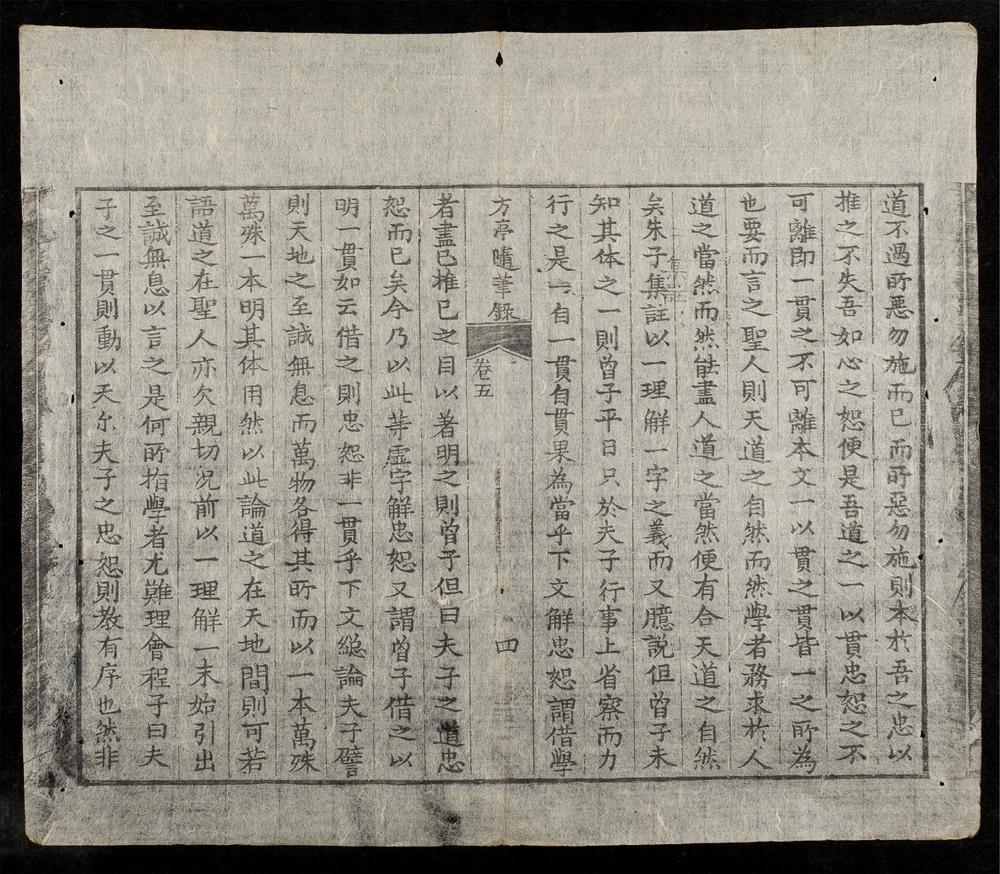 道不過所惡勿施而已而所惡勿施則本於吾之忠以
推之不失吾如心之恕便是吾道之一以貫忠恕之不
可離即一貫之不可離本文一以貫之貫皆一之所為
也要而言之聖人則天道之自然而然學者務求於人
道之當然而然能盡人道之當然便有合天道之自然
矣朱子集註以一理解一字之義而又臆説但曾子未
知其体之一則曾子平日只於夫子行事上省察而力
行之是一自一貫自貫果為當乎下文解忠恕謂借學
方亭隨筆錄 卷五 四
者盡已推已之目以著明之則曾子但曰夫子之道忠
恕而已矣今乃以此等虛字解忠恕又謂曾子借之以
明一貫如云借之則忠恕非一貫乎下文縂論夫子譬
則天地之至誠無息而萬物各得其所而以一本萬殊
萬殊一本明其体用然以此論道之在天地間則可若
語道之在聖人亦欠親切况前以一理解一末始引出
至誠無息以言之是何所指學者尤難理會程子曰夫
子之一貫則動以天尔夫子之忠恕則教有序也然非